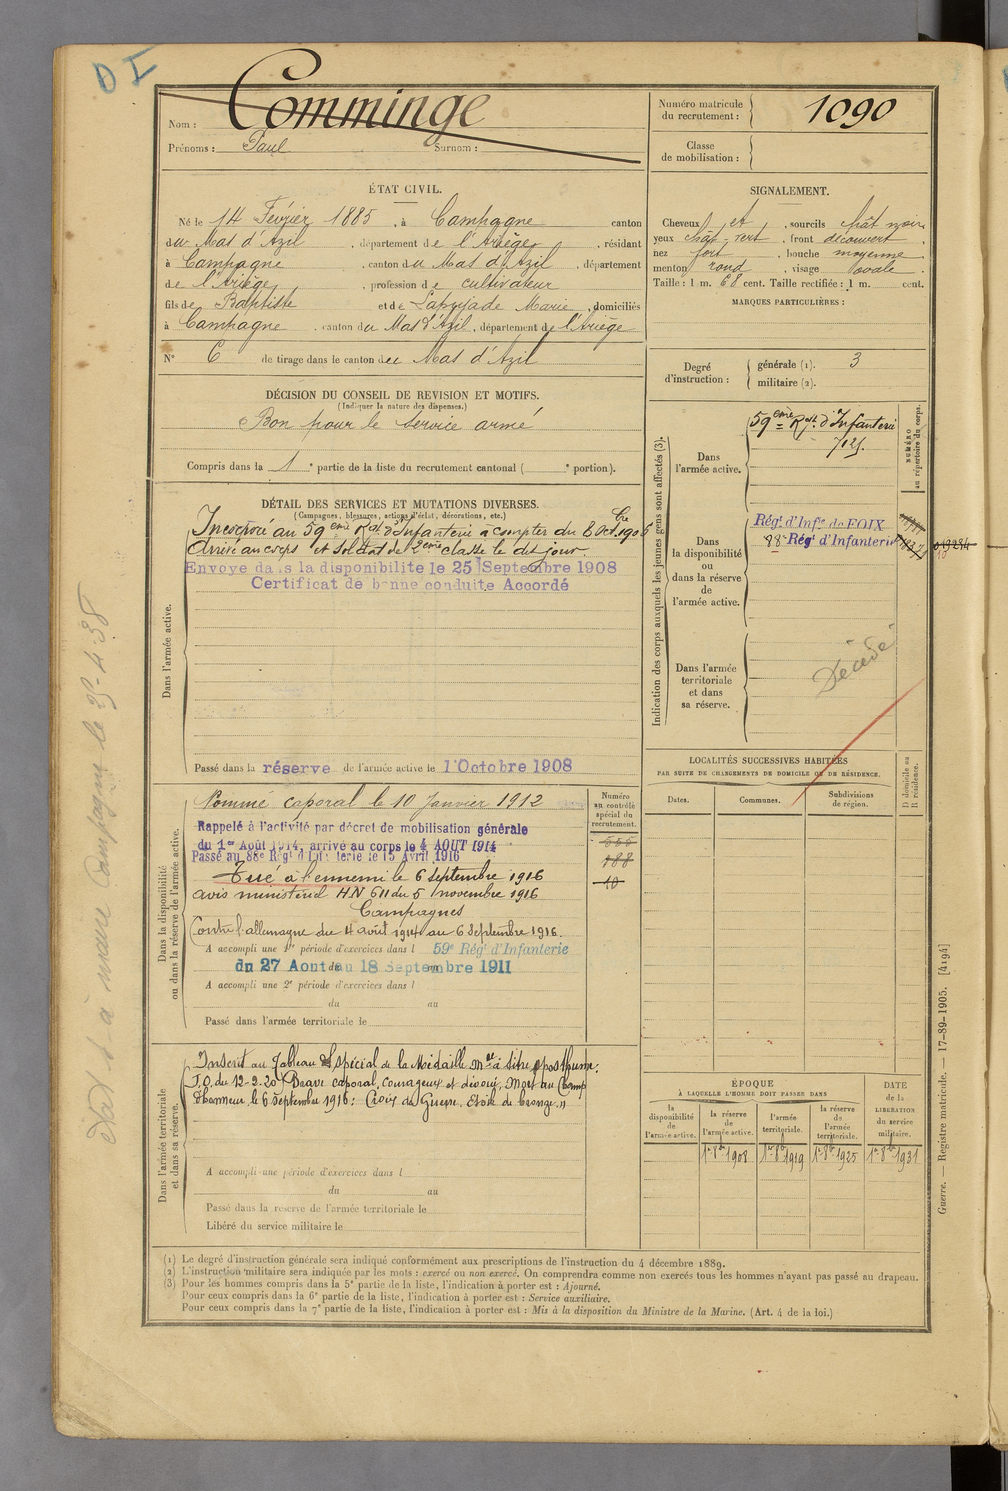 D I
Nom : Comminge
Prénoms : Paul Surnom :
Numéro matricule
du recrutement : 1090
Classe
de mobilisation :
ÉTAT CIVIL.
Né le 14 Février 1885, à Campagne canton
du Mas d'Azil, département de l'Ariège, résidant
à Campagne, canton du Mas d'Azil, département
de l'Ariège, profession de cultivateur
fils de Baptiste et de Marie, domiciliés
à Campagne, canton du Mas d'Azil, département de l'Ariège
N° 6 de tirage dans le canton du Mas d'Azil
SIGNALEMENT.
Cheveux et, sourcils chât noirs,
yeux chât-vert, front découvert,
nez fort, bouche moyenne
menton rond, visage ovale.
Taille : 1 m. 68 cent. Taille rectifiée : 1 m. cent.
MARQUES PARTICULIÈRES :
Degré
d'instruction :
générale (1). 3
militaire (2).
DÉCISION DU CONSEIL DE REVISION ET MOTIFS.
(Indiquer la nature des dispenses.)
Bon pour le service armé
Compris dans la 1e partie de la liste du recrutement cantonal ( e portion).
DÉTAIL DES SERVICES ET MUTATIONS DIVERSES.
(Campagnes, blessures, actions d'éclat, décorations, etc.)
Dans l'armée active.
Incorporé au 59ème Rgt d'Infanterie à compter du 8 Octbre 1906
Arrivé au corps et soldat de 2ème classe le dit jour.
Envoyé dans la disponibilité le 25 Septembre 1908
Certificat de bonne conduite Accordé
Passé dans la réserve de l'armée active le 1 Octobre 1908
Indication des corps auxquels les jeunes gens sont affectés (3).
NUMÉRO
au répertoire du corps.
Dans
l'armée active.
59ème Rgt. d'Infanterie
Dans
la disponibilité
ou
dans la réserve
de
l'armée active.
Régt d'Infie de FOIX
88e Régt d'Infanterie
Dans l'armée
territoriale
et dans
sa réserve.
Décédé
LOCALITÉS SUCCESSIVES HABITÉES
PAR SUITE DE CHANGEMENTS DE DOMICILE OU DE RÉSIDENCE.
Dates. Communes. Subdivisions
de région.
D domicile ou
R résidence.
Dans la disponibilité
ou dans la réserve de l'armée active.
Numéro
au contrôle
spécial du
recrutement.
555
188
10
Nommé caporal le 10 Janvier 1912
Rappelé à l'activité par décret de mobilisation générale
du 1er Août 1914, arrivé au corps le 4 AOUT 1914
Passé au 88e Régt d'Infanterie le 15 Avril 1916
Tué à l'ennemi le 6 Septembre 1916
avis ministériel HN 611 du 5 novembre 1916
Campagnes
Contre l'allemagne du 4 août 1914 au 6 Septembre 1916.
A accompli une 1e période d'exercices dans l 59e Régt d'Infanterie
du 27 Aout au 18 Septembre 1911
A accompli une 2e période d'exercices dans l
du au
Passé dans l'armée territoriale le
Dans l'armée territoriale
et dans sa réserve.
Inscrit au Tableau spécial de la Médaille Mre à titre posthume.
J.O. du 12-2-20 Brave caporal, courageux et dévoué, Mort au Champ
d'honneur le 6 Septembre 1916 : Croix de Guerre. Etoile de bronze."
A accompli une période d'exercices dans l
du au
Passé dans la réserve de l'armée territoriale le
Libéré du service militaire le
ÉPOQUE
À LAQUELLE L'HOMME DOIT PASSER DANS
la
disponibilité
de
l'armée active.
la réserve
de
l'armée active.
l'armée
territoriale.
la réserve
de
l'armée
territoriale.
DATE
de la
LIBÉRATION
du service
militaire.
1er 8b 1908 1er 8b 1919 1er 8b 1925 1er 8b 1931
(1) Le degré d'instruction générale sera indiqué conformément aux prescriptions de l'instruction du 4 décembre 1889.
(2) L'instruction militaire sera indiquée par les mots : exercé ou non exercé. On comprendra comme non exercés tous les hommes n'ayant pas passé au drapeau.
(3) Pour les hommes compris dans la 5e partie de la liste, l'indication à porter est : Ajourné.
Pour ceux compris dans la 6e partie de la liste, l'indication à porter est : Service auxiliaire.
Pour ceux compris dans la 7e partie de la liste, l'indication à porter est : Mis à la disposition du Ministre de la Marine. (Art. 4 de la loi.)
Guerre. — Registre matricule. — 17-89-1905. [4194]